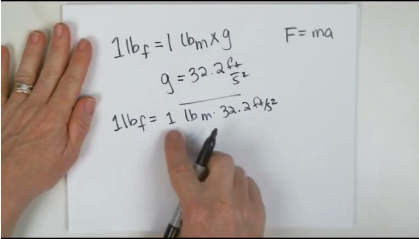 1 lbf = 1 lbm × g
F = ma
g = 32.2 ft/s²
1 lbf = 1 lbm · 32.2 ft/s²